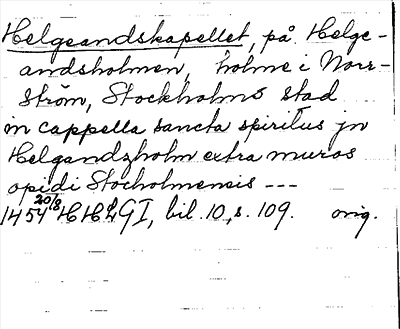 Helgeandskapellet, på Helge-
andsholmen, holme i Norr-
ström, Stockholms stad
in cappella sancta spiritus jn
Helgandzholm extra muros
opidi Stocholmensis ---
1454 20/8 HH GI, bil. 10, s. 109. orig.